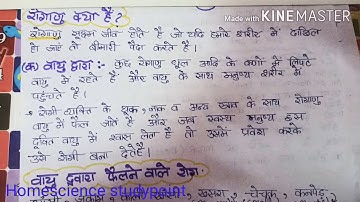 रोगाणु क्या है?
Made with KINEMASTER
रोगाणु सूक्ष्म जीव होते हैं जो यदि हमारे शरीर में दाखिल
हो जाएँ तो बीमारी पैदा करते हैं।
(क) वायु द्वारा :- कुछ रोगाणु धूल आदि के कणों में लिपटे
वायु में रहते हैं और वायु के साथ मनुष्य शरीर में
पहुँचते हैं।
रोगी व्यक्ति के थूक, नाक व अन्य स्त्राव के साथ रोगाणु
वायु में फैल जाते हैं और जब स्वस्थ मनुष्य इस
दूषित वायु में श्वास लेता है तो उसमें प्रवेश करके
उसे रोगी बना देते हैं।
वायु द्वारा फैलने वाले रोग
Homescience studypoint
खसरा, चेचक, कनफेड़